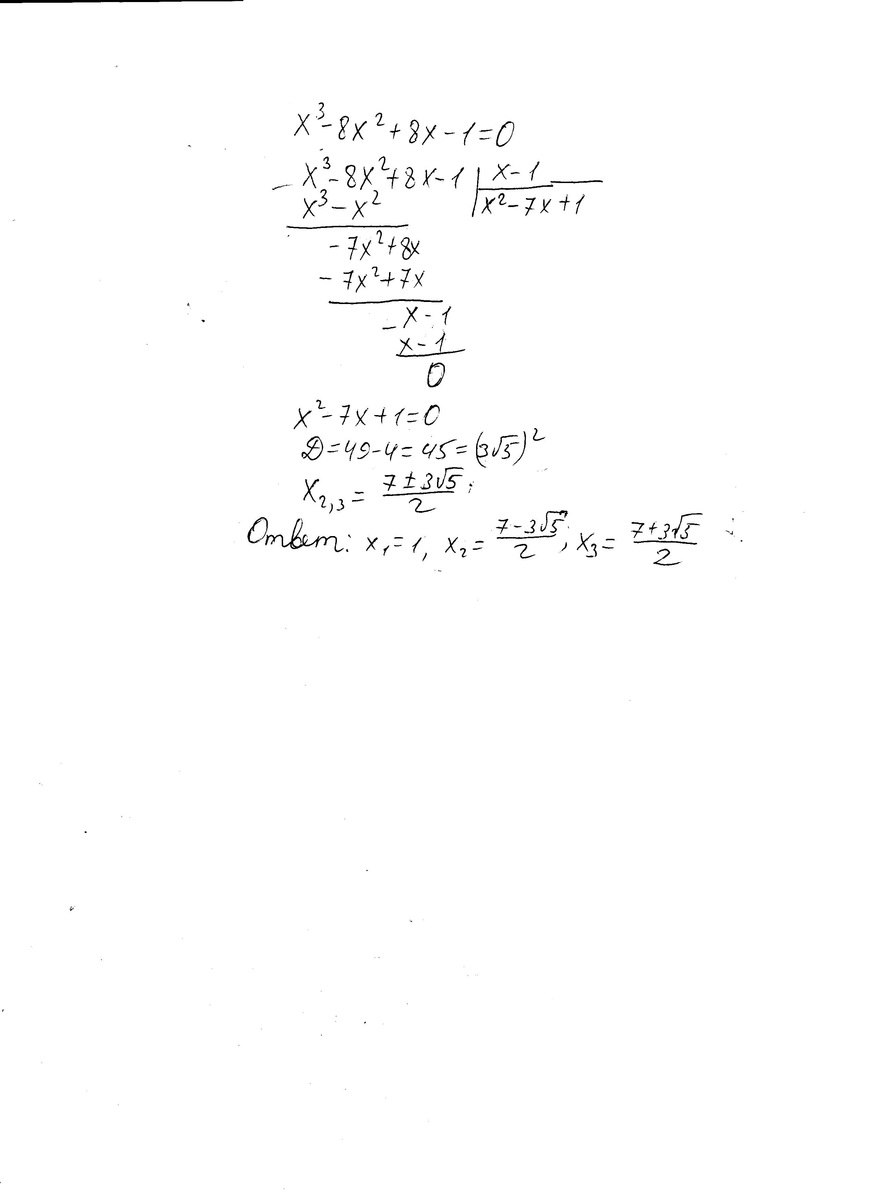 x³-8x²+8x-1=0
- x³-8x²+8x-1 | x-1
x³-x² | x²-7x+1
-7x²+8x
-7x²+7x
- x-1
x-1
0
x²-7x+1=0
D=49-4=45=(3√5)²
x₂,₃= (7±3√5)/2;
Ответ: x₁=1, x₂= (7-3√5)/2, x₃= (7+3√5)/2